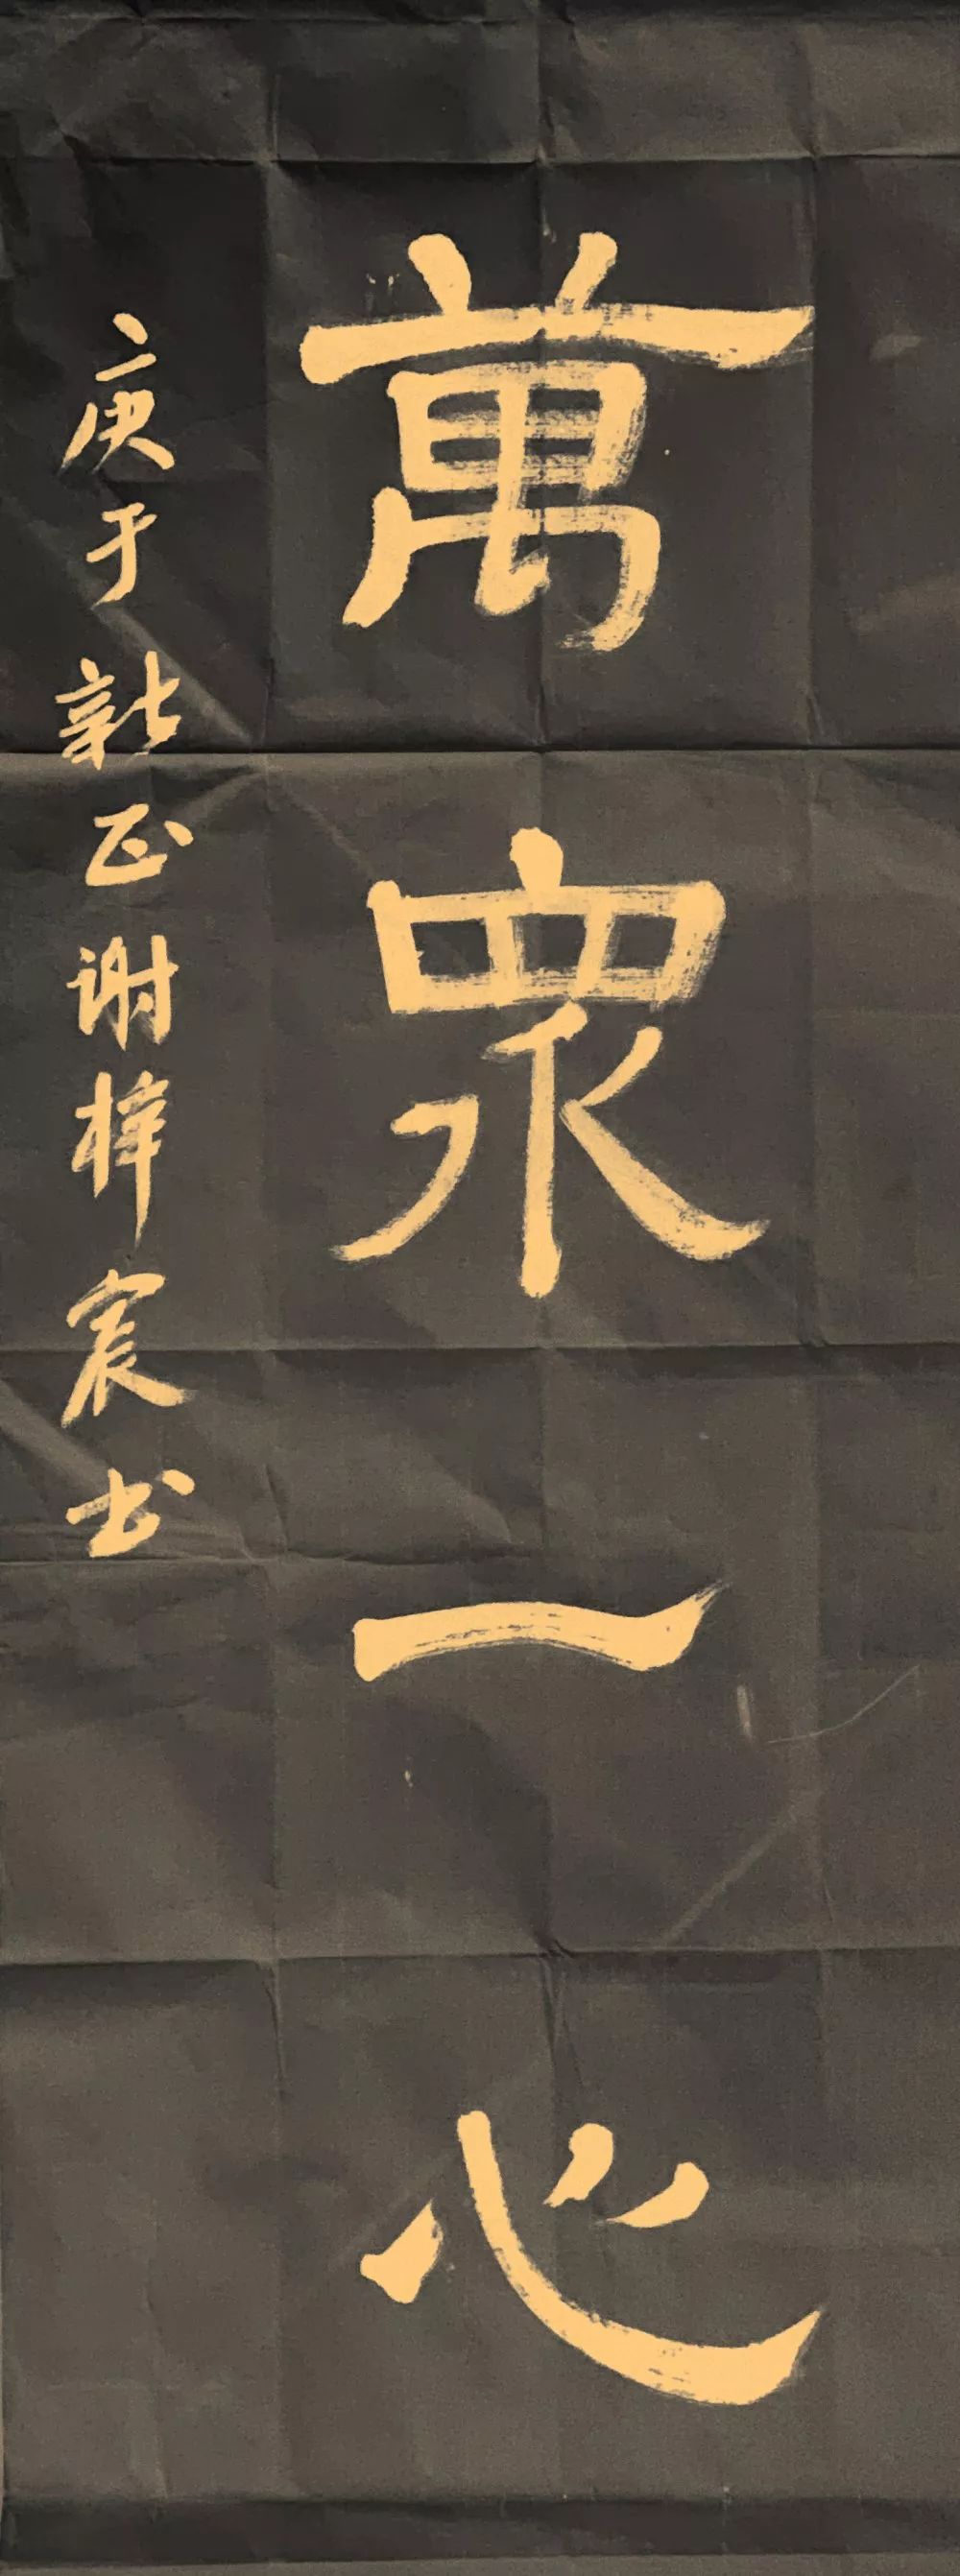 萬眾一心
庚子新正谢梓宸书